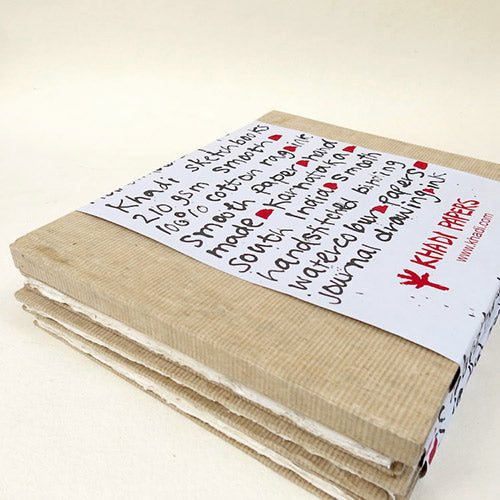 Khadi sketchbooks
210 gsm smooth
100% cotton rag ink
smooth paper hand
made Karnataka
South India smooth
handstitched binding
watercolour papers
journal drawing ink
KHADI PAPERS
www.khadi.com